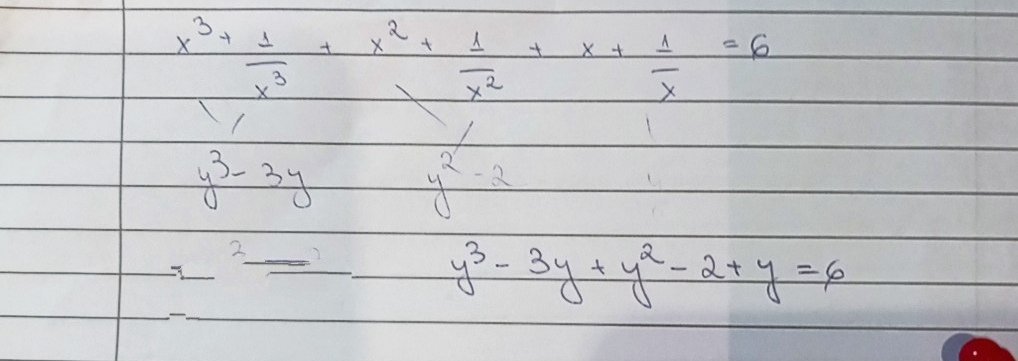 x³ + 1/x³ + x² + 1/x² + x + 1/x = 6
y³ - 3y y² - 2
y³ - 3y + y² - 2 + y = 6